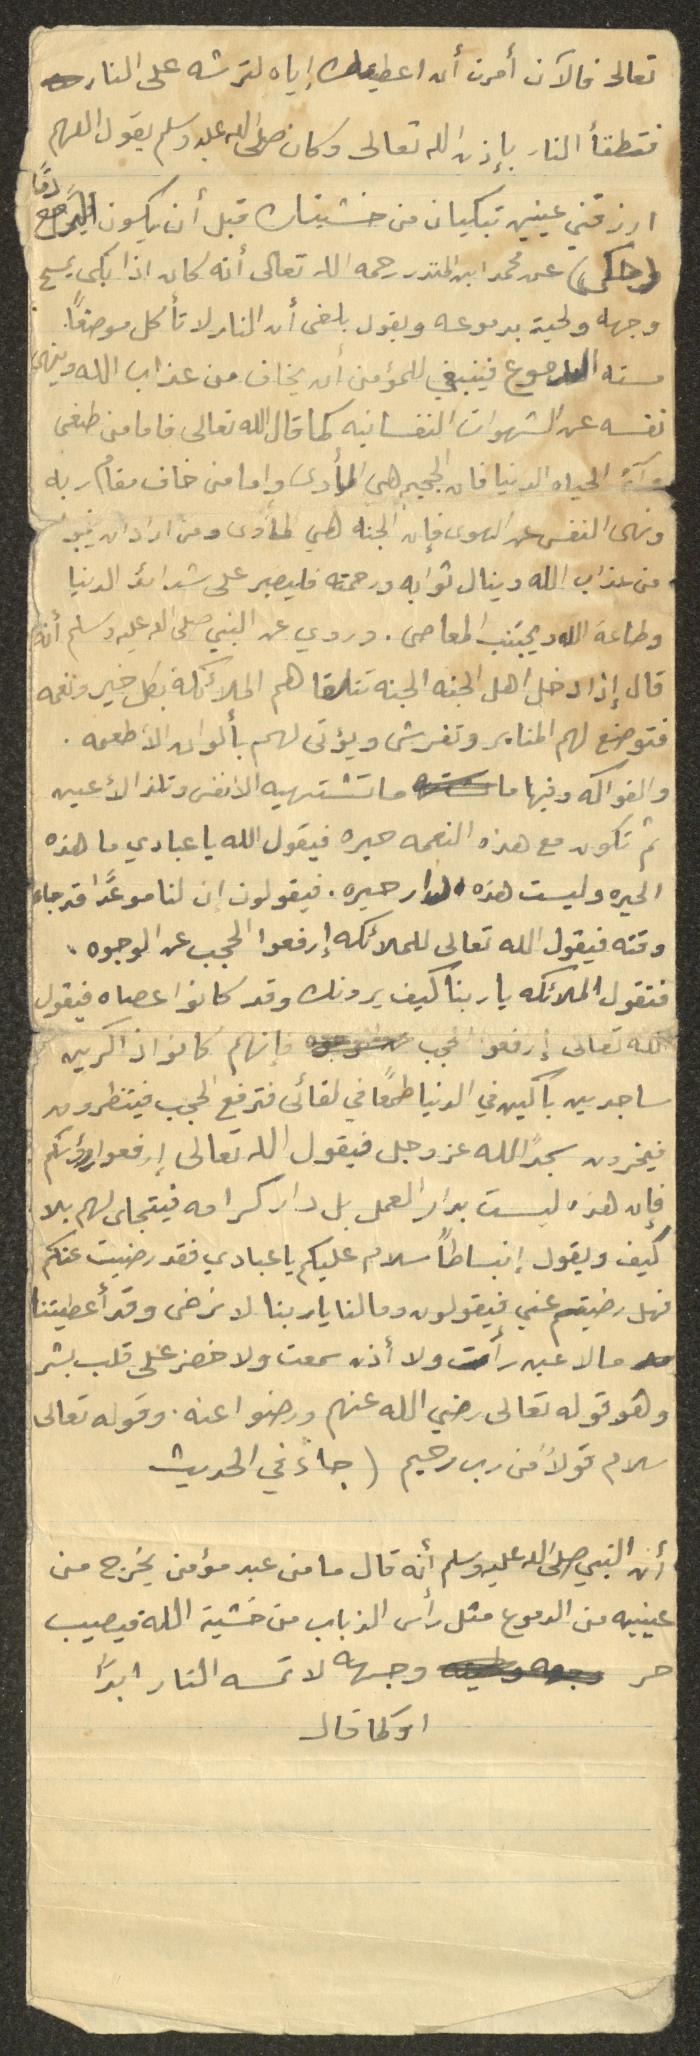 تعالى فالآن أمرت أن اعطيك إياه لترشه على النار
فتطفأ النار بإذن الله تعالى وكان صلى الله عليه وسلم يقول اللهم
دمًا
ارزقني عينين تبكيان من خشيتك قبل أن يكون الدمع
(وحكى) عن محمد ابن المنذر رحمه الله تعالى أنه كان اذا بكى يمسح
وجهه ولحية بدموعه ويقول بلغني أن النار لا تأكل موضعًا
مسته الدموع فينبغي للمؤمن أن يخاف من عذاب الله وينهى
نفسه عن الشهوات النفسانيه كما قال الله تعالى فاما من طغى
وآثر الحياه الدنيا فان الجحيم هي المأوى واما من خاف مقام ربه
ونهى النفس عن الهوى فإن الجنه هي المأوى ومن اراد ان ينجو
من عذاب الله وينال ثوابه ورحمته فليصبر على شدائد الدنيا
وطاعة الله ويجتنب المعاصي . وروي عن النبي صلى الله عليه وسلم أنه
قال إذا دخل اهل الجنه الجنه تتلقاهم الملائكة بكل خير ونعمه
فتوضع لهم المنابر وتفرش ويؤتى لهم بألوان الأطعمه .
والفواكه وفيها ما ما تشتهيه الأنفس وتلذ الأعين
ثم تكون مع هذه النعمه حيره فيقول الله يا عبادي ما هذه
الحيره وليست هذه الدار حيره . فيقولون إن لنا موعدًا قد جاء
وقته فيقول الله تعالى للملائكه إرفعوا الحجب عن الوجوه .
فتقول الملائكه يا ربنا كيف يرونك وقد كانوا عصاه فيقول
الله تعالى إرفعوا الحجب فإنهم كانوا ذاكرين
ساجدين باكين في الدنيا طمعًا في لقائى فترفع الحجب فينظرون
فيخرون سجدًا لله عز وجل فيقول الله تعالى إرفعوا رؤسكم
فإن هذه ليست بدار العمل بل دار كرامه فيتجلى لهم بلا
كيف ويقول إنبساطًا سلام عليكم يا عبادي فقد رضيت عنكم
فهل رضيتم عني فيقولون ومالنا يا ربنا لا نرضى وقد أعطيتنا
مالا عين رأت ولا أذن سمعت ولا خضر على قلب بشر
وهو قوله تعالى رضي الله عنهم ورضوا عنه . وقوله تعالى
سلام قولاً من رب رحيم ( جاء في الحديث
أن النبي صلى الله عليه وسلم أنه قال ما من عبد مؤمن يخرج من
عينيه من الدموع مثل رأس الذباب من خشية الله فيصيب
حر وجهه لا تمسه النار ابدًا
او كما قال